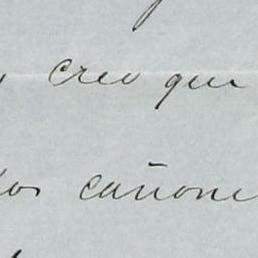 creo que
los cañone